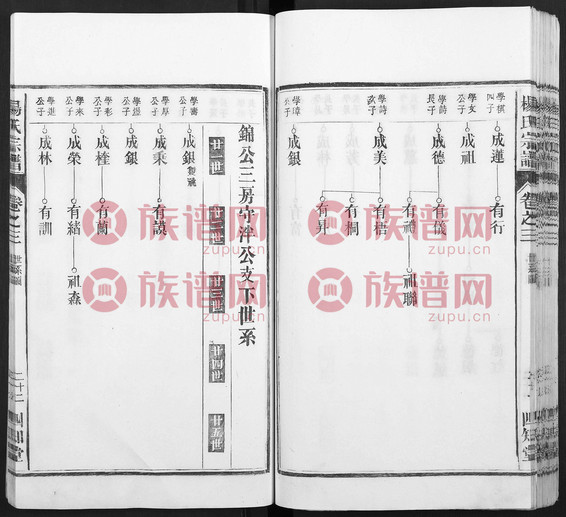 學槙
四子
成蓮
有行
學友
公子
成祖
學詩
長子
成德
有儀
有禮
祖聯
學詩
次子
成美
有梧
有桐
有昇
學璋
公子
成銀
錦公三房守泮公支下世系
廿一世
廿二世
廿三世
廿四世
廿五世
學濤
公子
成銀
學厚
公子
成乘
有謨
公子
成銀
學彩
公子
成桂
有蘭
學來
公子
成榮
有緒
祖森
學進
公子
成林
有訓
楊氏宗譜
卷之三
世系
四知堂
楊氏宗譜
卷之三
四知堂
族谱网
zupu.cn
族谱网
zupu.cn
族谱网
zupu.cn
族谱网
zupu.cn